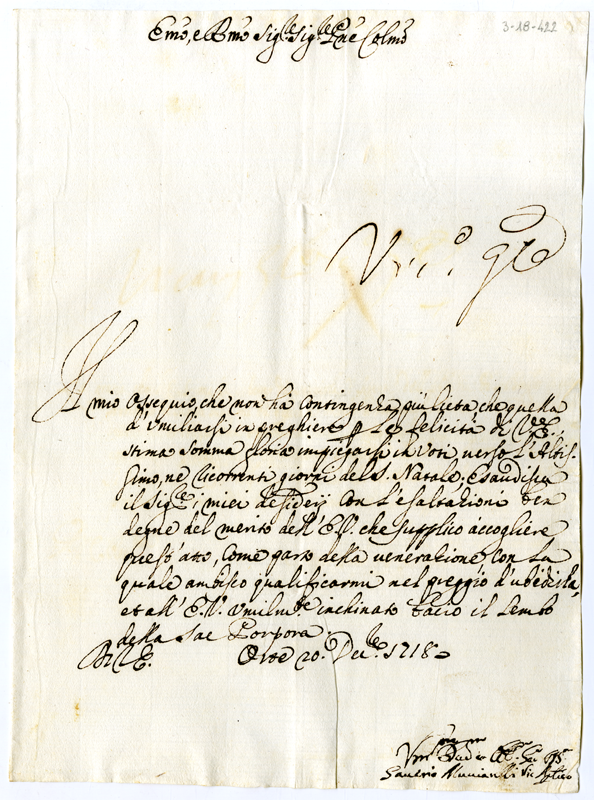 3-18-422
Emo, e Rmo Sig.re Sig.re Pne Colmo
Il mio Ossequio, che non hà Contingenza più lieta, che quella
d'umiliarsi in preghiere p Le felicità di V.E.,
stima somma gloria impiegarsi in Voti verso L'Altis-
simo, ne ricorrenti giorni del S. Natale; Esaudisca
il Sig.re i miei desiderij Con L'esaltazioni ben
degne del merito dell'E.V. che supplico accogliere
quest'atto, Come parto della venerazione, Con La
quale ambisco qualificarmi nel preggio d'ubidirla,
et all'E.V. Umilm.te inchinato bacio il Lembo
della Sac Porpora.
Di V.E. Orte 20. Dec.re 1718
Saverio Vic